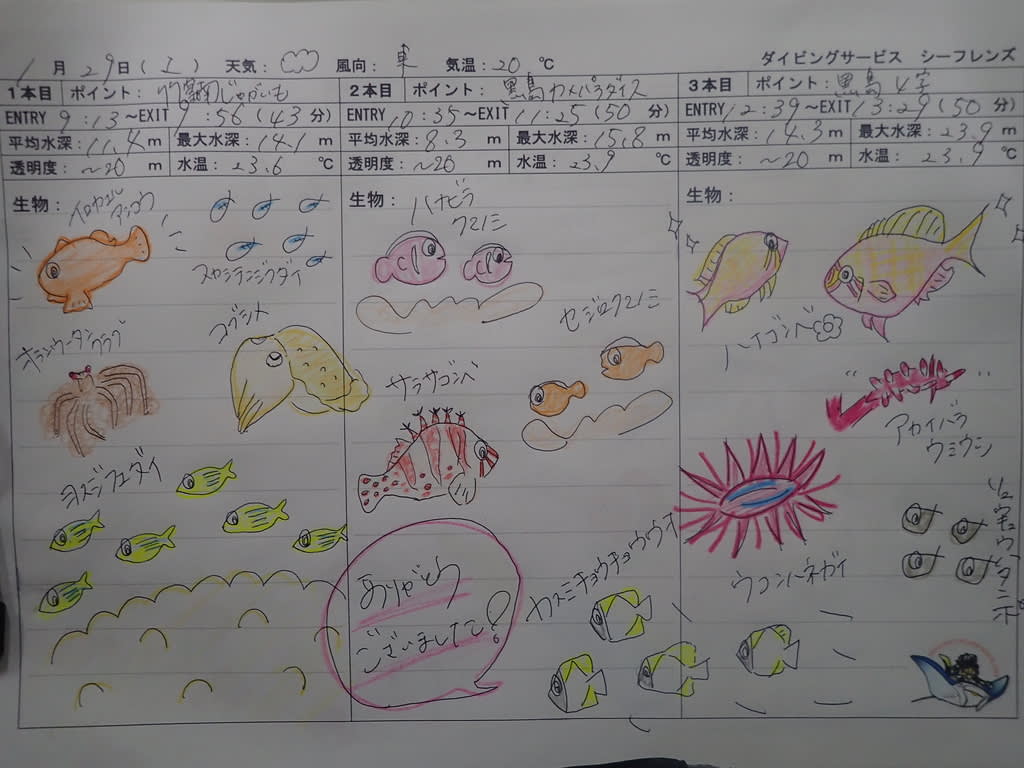 1月29日(土) 天気: 風向: 東 気温: 20 ℃ ダイビングサービス シーフレンズ
1本目 ポイント: じゃがいも
ENTRY 9:13~EXIT 9:56(43分)
平均水深: 11.4 m 最大水深: 14.1 m
透明度: ~20 m 水温: 23.6 ℃
生物:
イロカエルアンコウ
スカシテンジクダイ
コブシメ
キランウータンクラブ
ヨスジフエダイ
2本目 ポイント: 黒島カメパラダイス
ENTRY 10:35~EXIT 11:25(50分)
平均水深: 8.3 m 最大水深: 15.8 m
透明度: ~20 m 水温: 23.9 ℃
生物:
ハナビラ
クマノミ
セジロクマノミ
サラサゴンベ
ありがとう
ございました!
カスミチョウチョウウオ
3本目 ポイント: 黒島V字
ENTRY 12:39~EXIT 13:29(50分)
平均水深: 14.3 m 最大水深: 23.9 m
透明度: ~20 m 水温: 23.9 ℃
生物:
ハナゴンベ
アカイバラ
ウミウシ
ウコンハネガイ
リュウキュウハタンポ